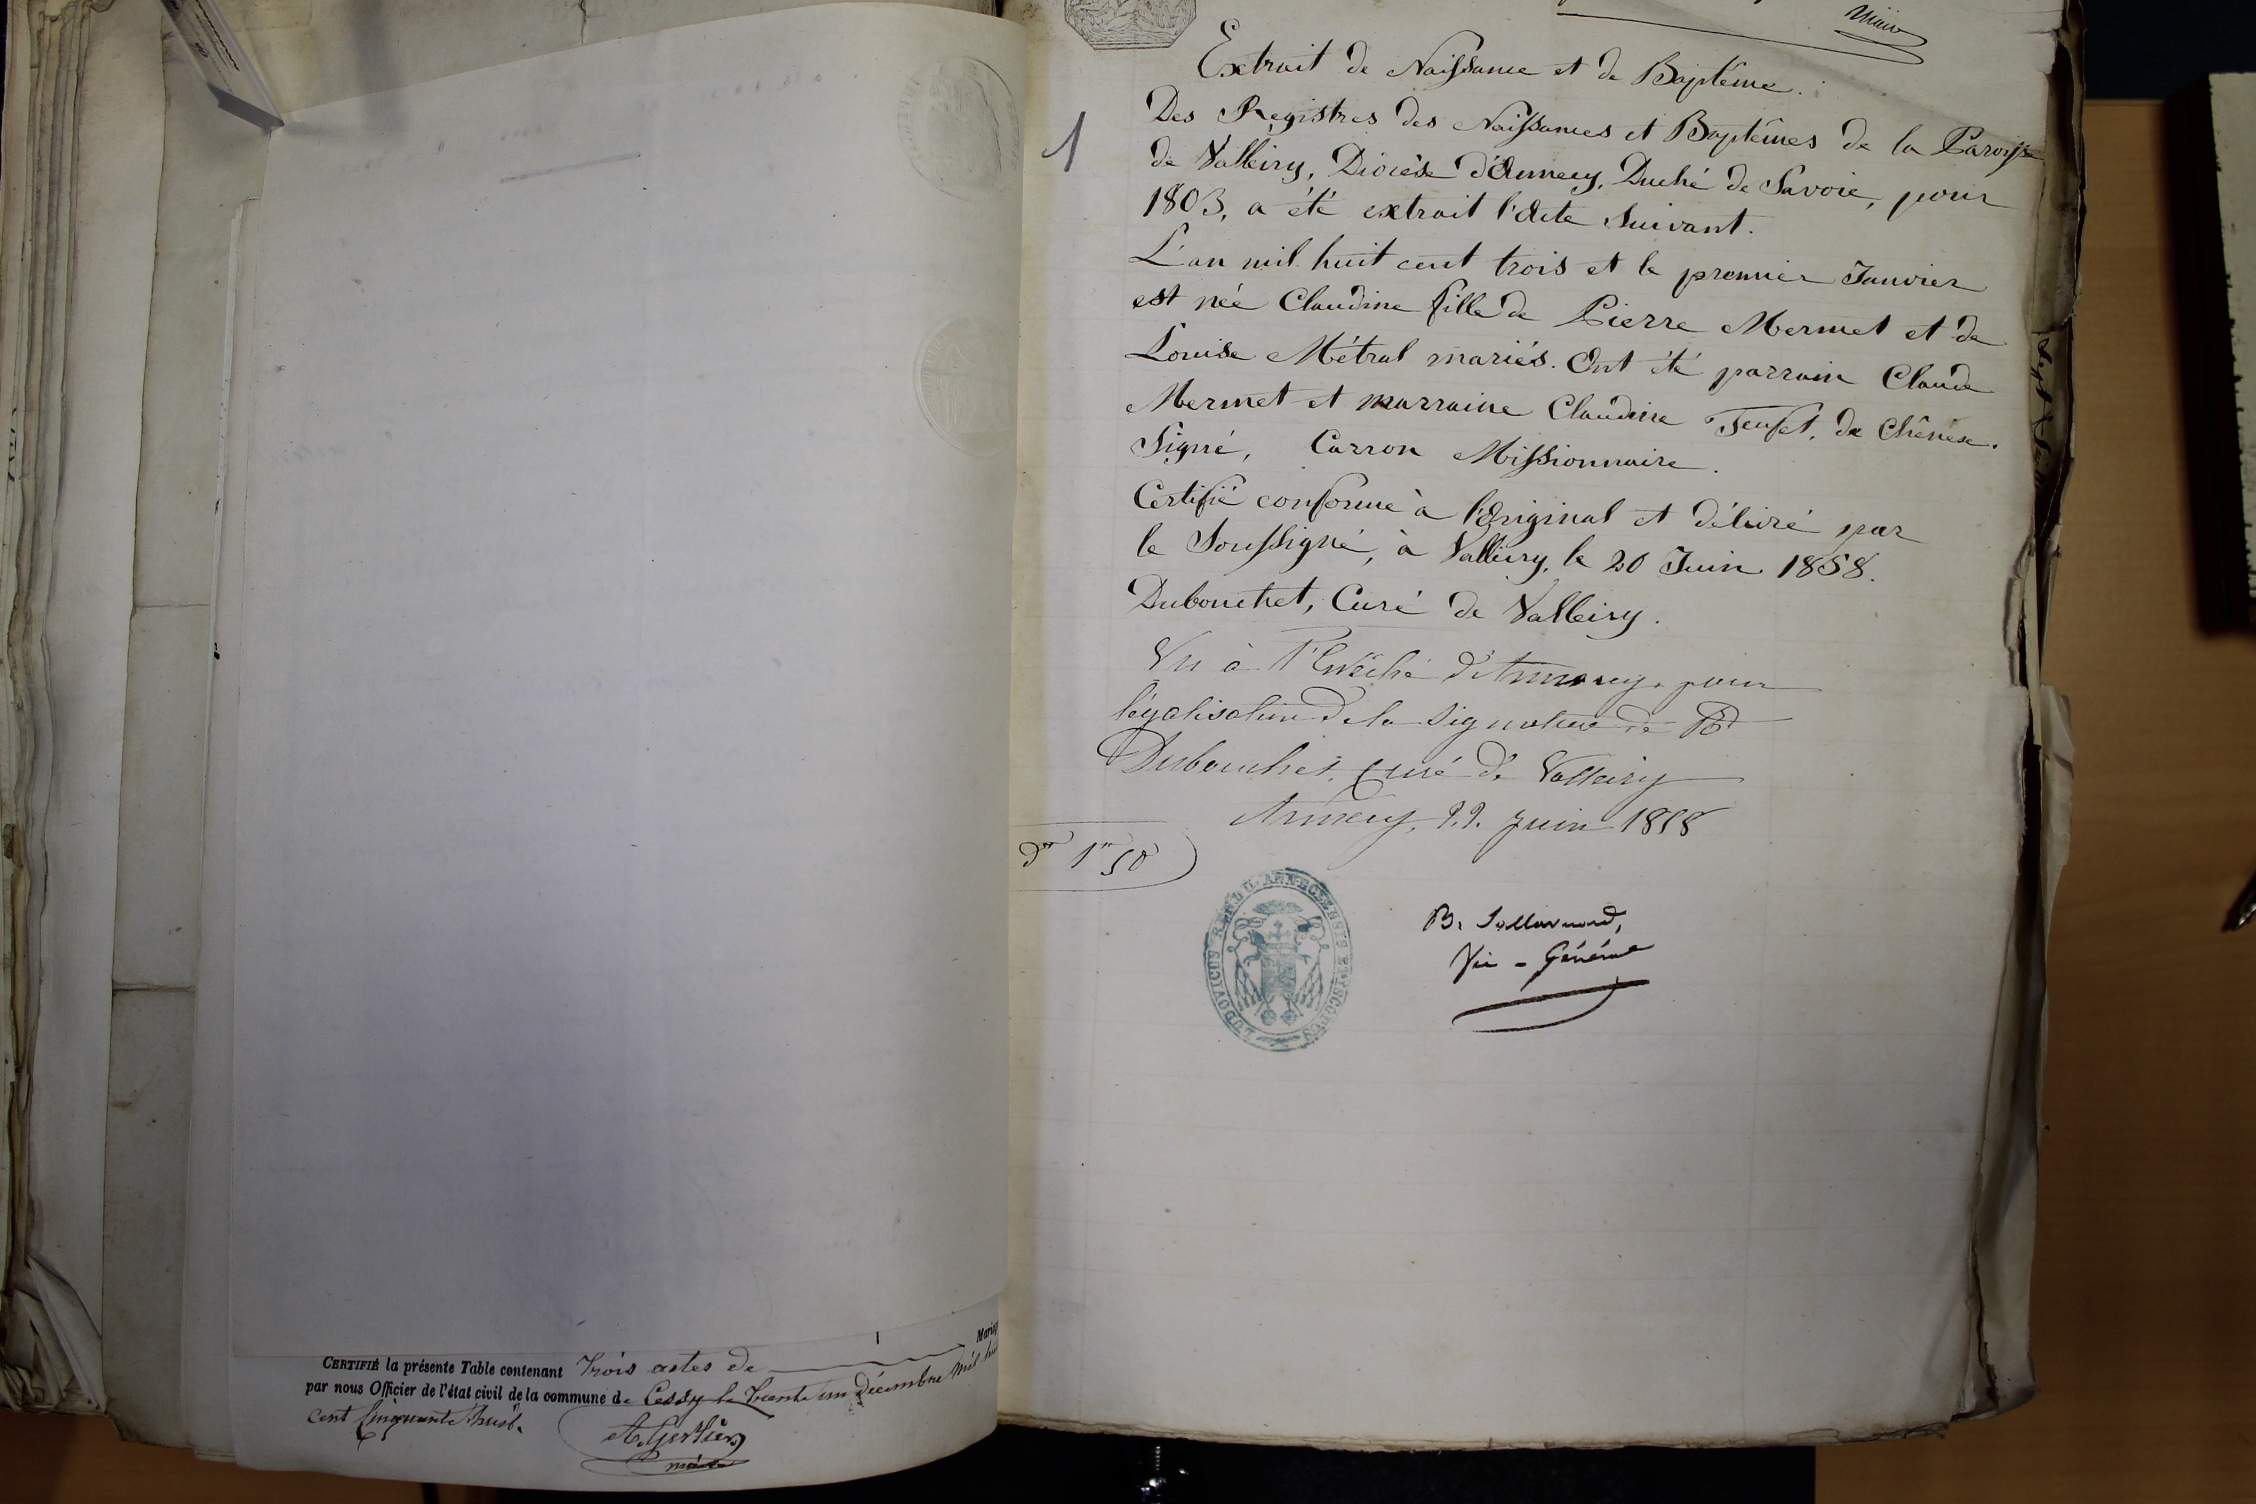 CERTIFIÉ la présente Table contenant trois actes de Mariag
par nous Officier de l'état civil de la commune de Cessy le trente un Décembre mil hui
cent Cinquante huit.
maire
Maire
Extrait de Naissance et de Baptême.
1
Des Registres des Naissances et Baptêmes de la Paroisse
de Valleiry, Diocèse d'Annecy, Duché de Savoie, pour
1803, a été extrait l'Acte suivant.
L'an mil huit cent trois et le premier Janvier
est née Claudine fille de Pierre Mermet et de
Louise Métral mariés. Ont été parrain Claude
Mermet et marraine Claudine de Chênex.
Signé, Carron Missionnaire.
Certifié conforme à l'Original et délivré par
le Soussigné, à Valleiry, le 20 Juin 1858.
Dubouchet, Curé de Valleiry.
Vu à l'Evêché d'Annecy, pour
légalisation de la signature de Rd
Dubouchet, Curé de Valleiry
Annecy, 22 juin 1858
B.
Vic-Général
LUDOVICUS RENDU ANNECIENSIS EPISCOPUS